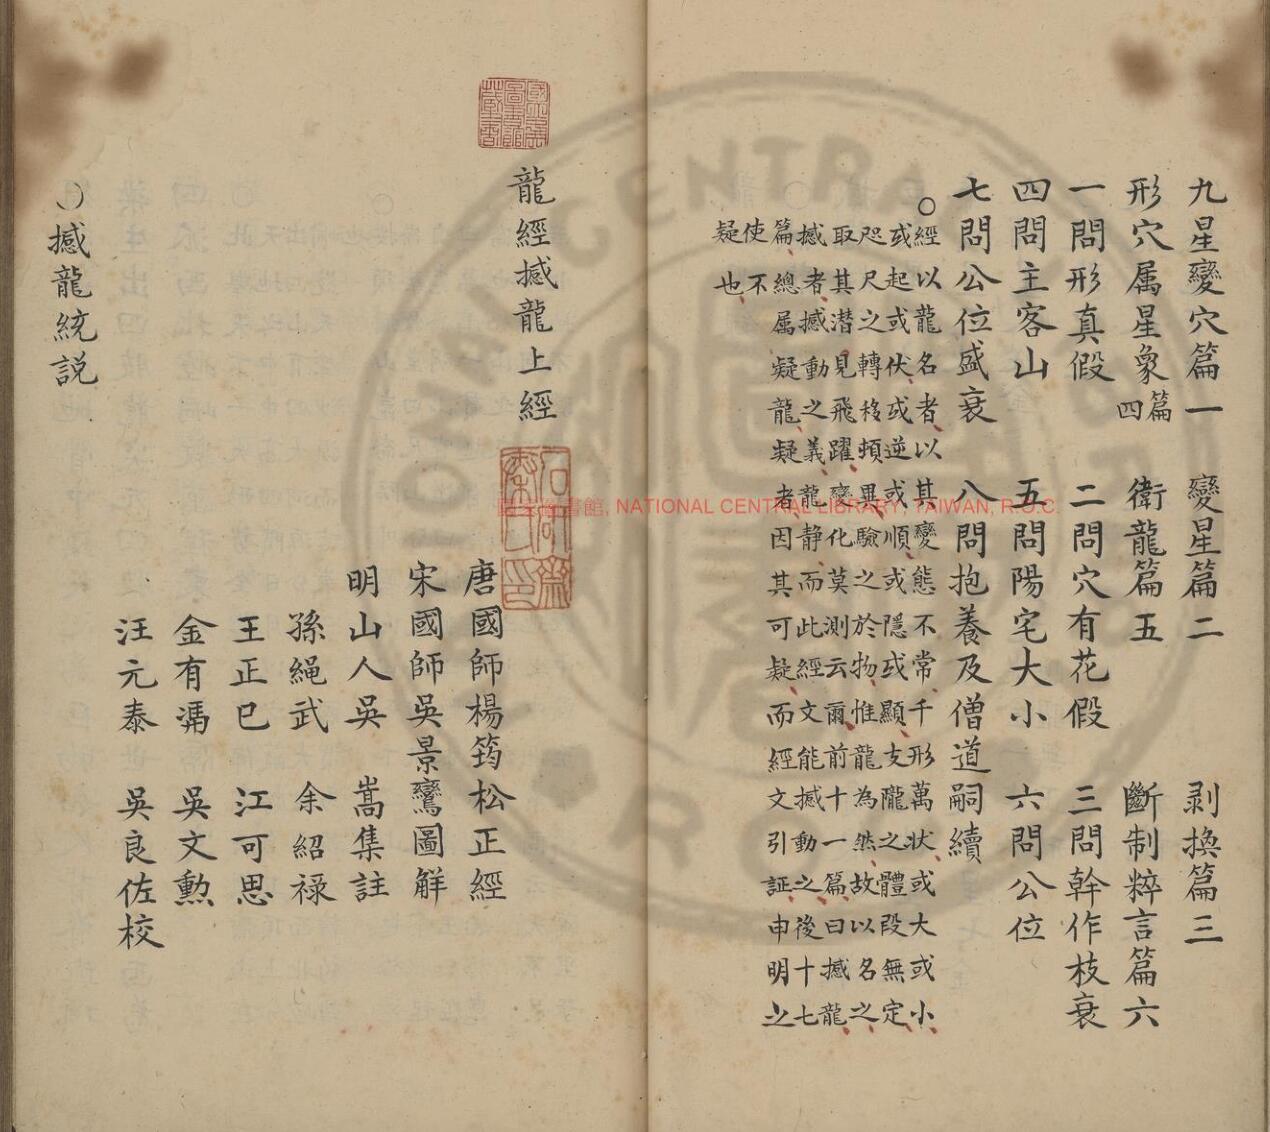 九星變穴篇一　變星篇二　剥換篇三
形穴属星象篇四　衛龍篇五　斷制粹言篇六
一問形真假　二問穴有花假　三問幹作枝衰
四問主客山　五問陽宅大小　六問公位
七問公位盛衰　八問抱養及僧道嗣續
○經以龍名者以其變態不常千形萬狀或大或小
或起或伏或逆或順或隱或顯支隴之體段無定
咫尺之轉移頓異驗之於物惟龍為然故以名之
取其潜見飛躍變化莫測云爾前十一篇曰撼龍
撼者撼動之義龍静而此經文能撼動之後十七
篇總属疑龍疑者因其可疑而經文引証申明之
使不
疑也
龍經撼龍上經
石研齋秦氏印
唐國師楊筠松正經
宋國師吳景鸞圖解
明山人吳　嵩集註
孫繩武　余紹禄
王正巳　江可思
金有馮　吳文勲
汪元泰　吳良佐校
○撼龍統説
國家圖書館, NATIONAL CENTRAL LIBRARY, TAIWAN, R.O.C.